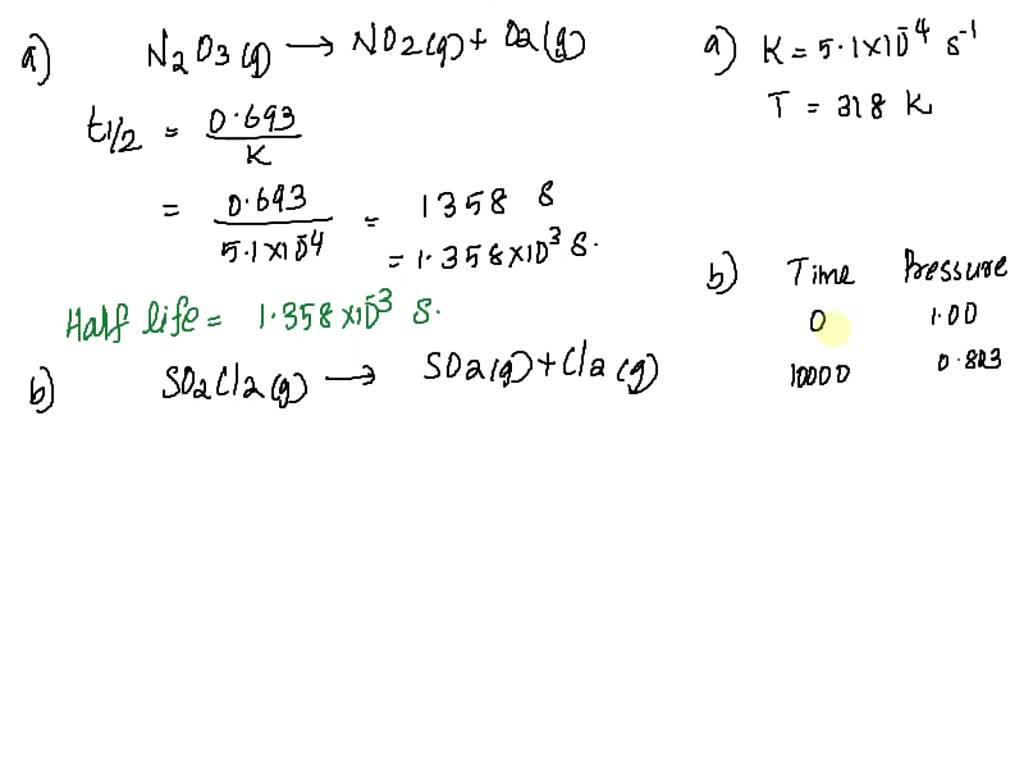 a) N₂O₃(g) → NO₂(g) + O₂(g)
t1/2 = 0.693 / K
= 0.693 / 5.1×10⁻⁴ = 1358 S
= 1.358×10³ S.
Half life = 1.358×10⁻³ S.
b) SO₂Cl₂(g) → SO₂(g) + Cl₂(g)
a) K = 5.1×10⁻⁴ s⁻¹
T = 318 K
b) Time Pressure
0 1.00
10000 0.823